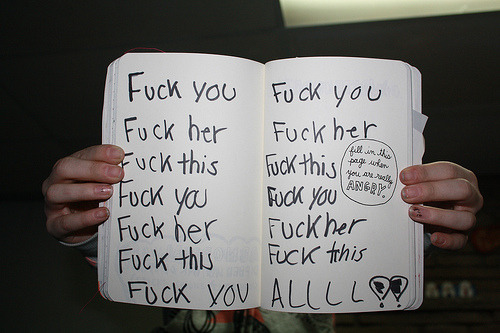 Fuck you
Fuck her
Fuck this
Fuck you
Fuck her
Fuck this
Fuck you
Fuck you
Fuck her
Fuck this
fill in this
page when
you are really
ANGRY.
Fuck you
Fuck her
Fuck this
ALLLL